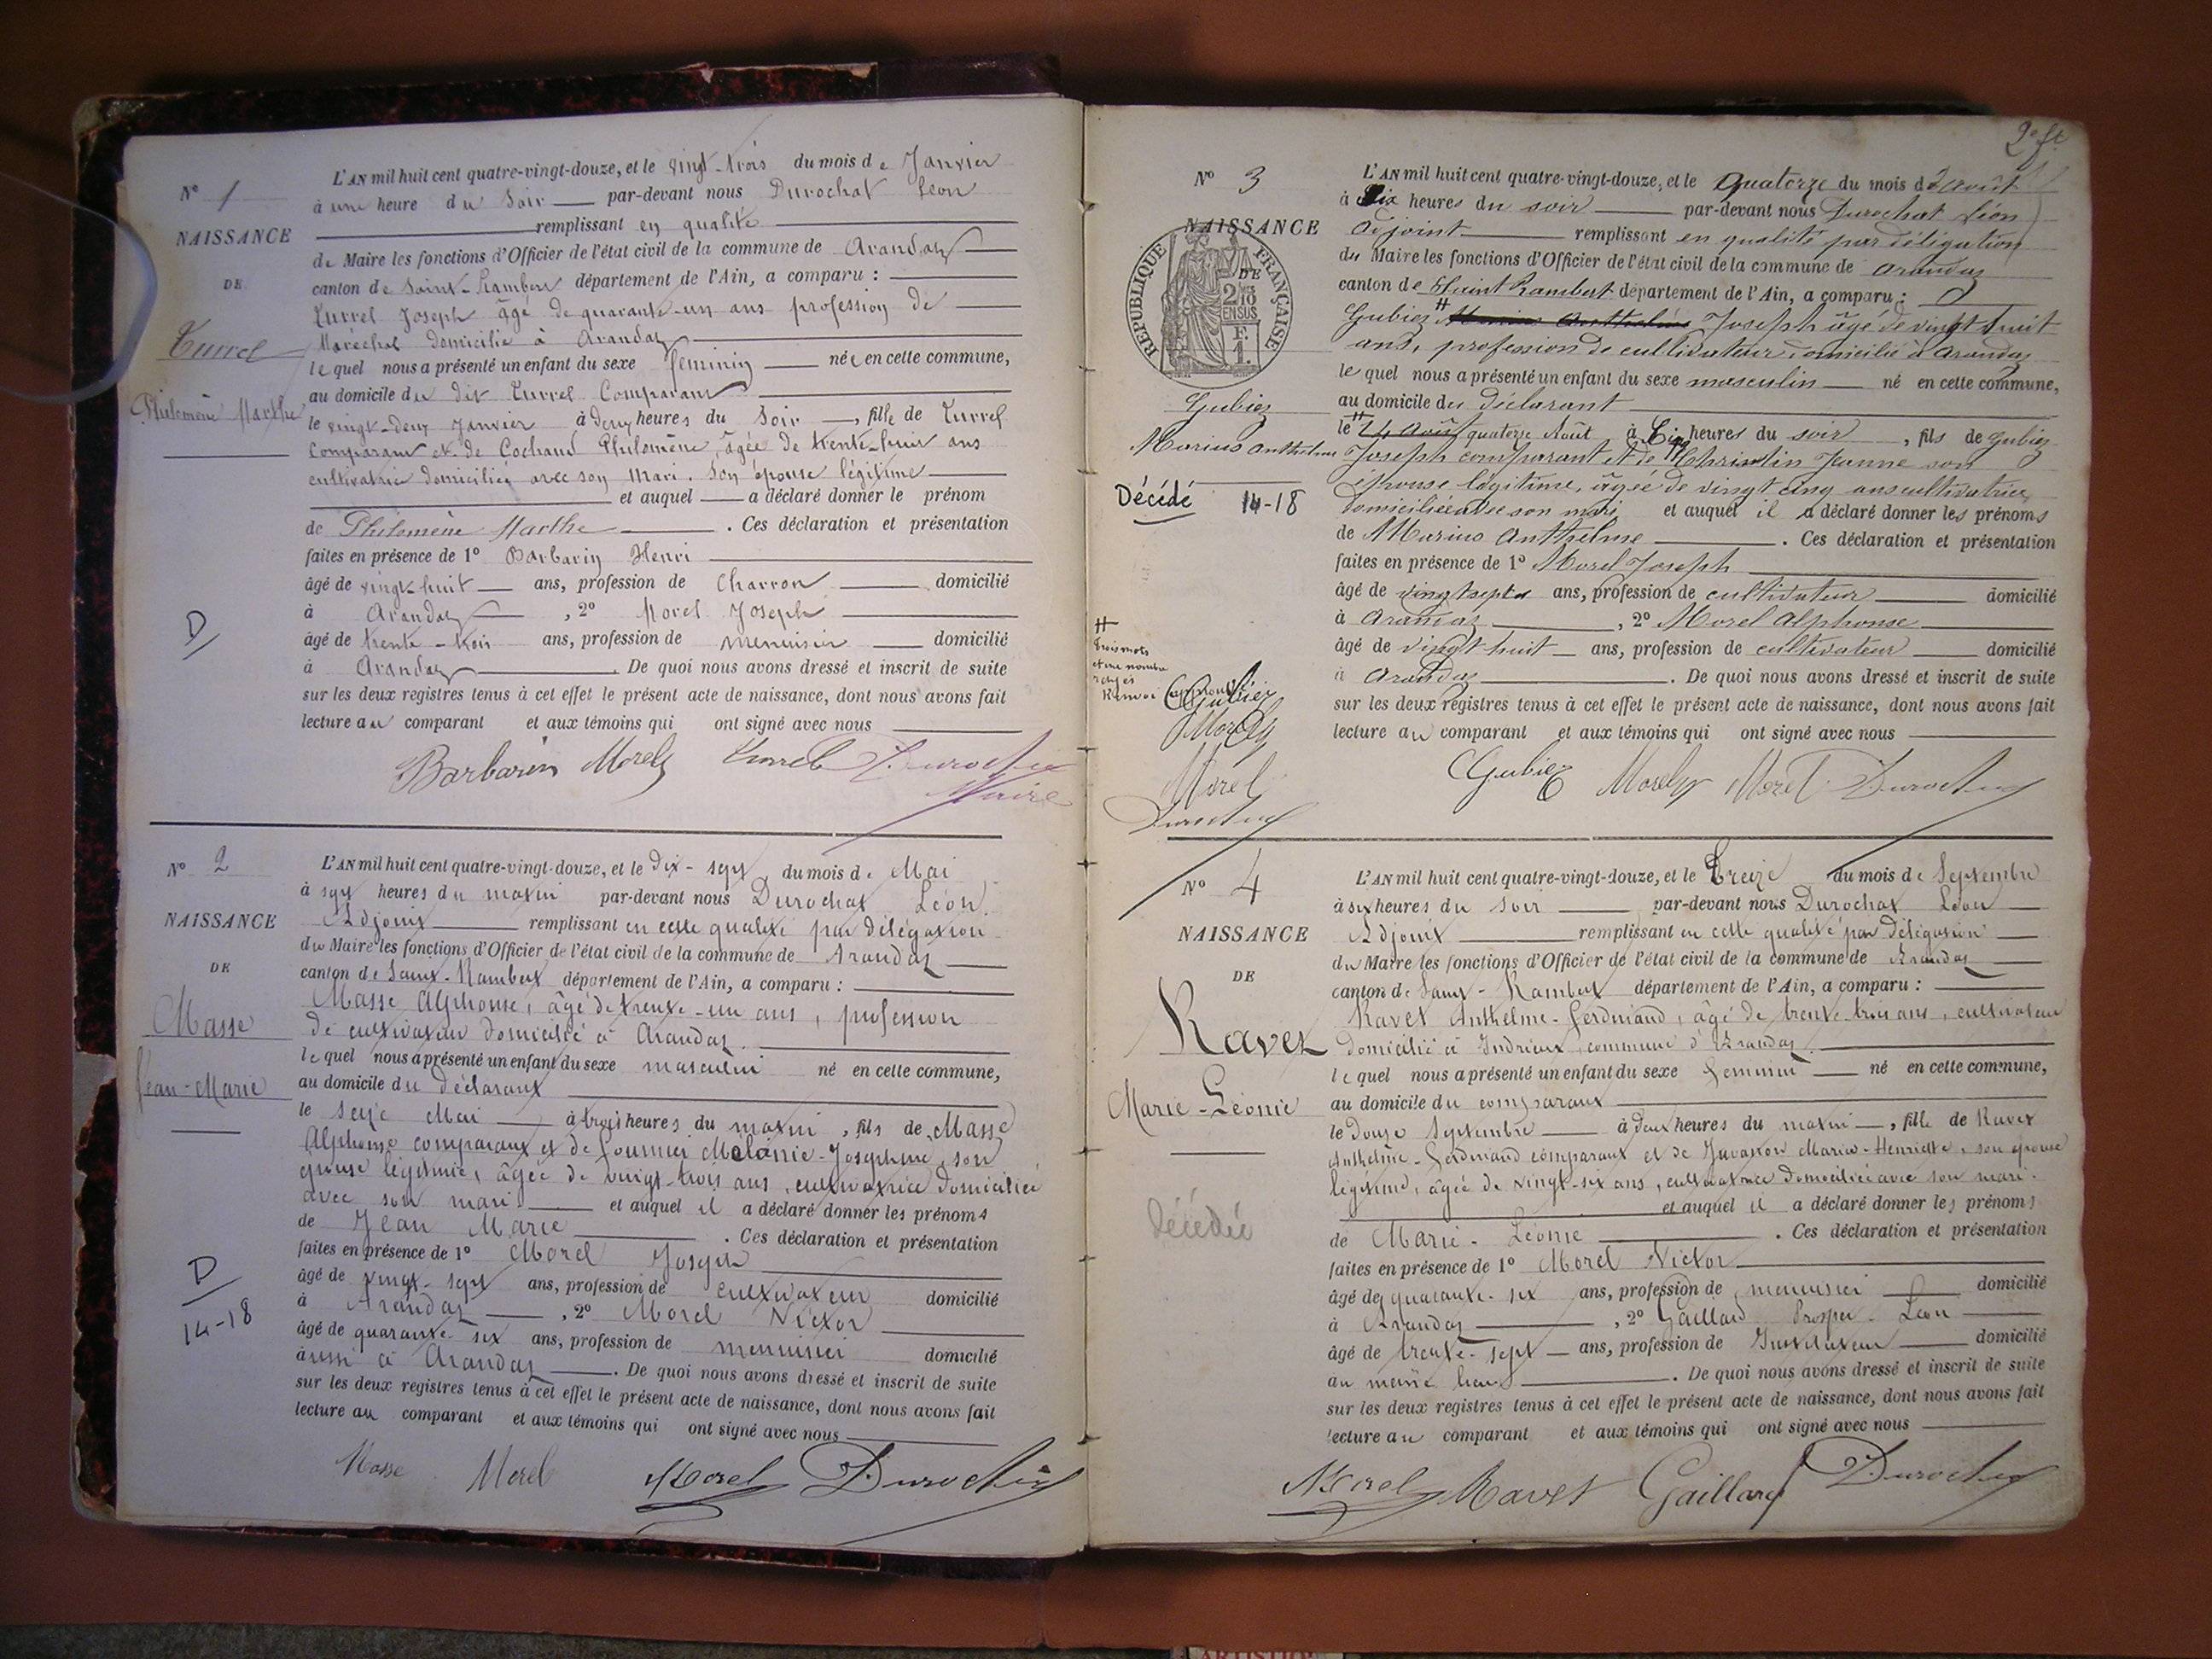 N° 1
NAISSANCE
DE
Turrel
Philomène Marthe
D
L'AN mil huit cent quatre-vingt-douze, et le vingt-trois du mois de Janvier
à une heure du Soir par-devant nous Durochat Léon
remplissant en qualité
de Maire les fonctions d'Officier de l'état civil de la commune de Arandaz
canton de Saint-Rambert département de l'Ain, a comparu :
Turrel Joseph âgé de quarante-un ans profession de
Maréchal domicilié à Arandaz
lequel nous a présenté un enfant du sexe féminin née en cette commune,
au domicile du dit Turrel Comparant
le vingt-deux Janvier à deux heures du Soir, fille de Turrel
Comparant et de Cochand Philomène, âgée de trente-deux ans
cultivatrice domiciliée avec son Mari. Son épouse légitime
et auquel a déclaré donner le prénom
de Philomène Marthe. Ces déclaration et présentation
faites en présence de 1° Barbarin Henri
âgé de vingt-huit ans, profession de Charron domicilié
à Arandaz, 2° Morel Joseph
âgé de trente-trois ans, profession de menuisier domicilié
à Arandaz. De quoi nous avons dressé et inscrit de suite
sur les deux registres tenus à cet effet le présent acte de naissance, dont nous avons fait
lecture au comparant et aux témoins qui ont signé avec nous
Barbarin Morel Turrel Durochat
Maire
N° 2
NAISSANCE
DE
Masse
Jean-Marie
D
14-18
L'AN mil huit cent quatre-vingt-douze, et le Dix-sept du mois de Mai
à sept heures du matin par-devant nous Durochat Léon
Adjoint remplissant en cette qualité par délégation
du Maire les fonctions d'Officier de l'état civil de la commune de Arandaz
canton de Saint-Rambert département de l'Ain, a comparu :
Masse Alphonse, âgé de trente-un ans, profession
de cultivateur domicilié à Arandaz.
lequel nous a présenté un enfant du sexe masculin né en cette commune,
au domicile du déclarant
le seize Mai à trois heures du matin, fils de Masse
Alphonse comparant et de Fournier Mélanie-Joséphine, son
épouse légitime, âgée de vingt-trois ans, cultivatrice domiciliée
avec son mari et auquel il a déclaré donner les prénoms
de Jean Marie. Ces déclaration et présentation
faites en présence de 1° Morel Joseph
âgé de vingt-sept ans, profession de cultivateur domicilié
à Arandaz, 2° Morel Victor
âgé de quarante-six ans, profession de menuisier domicilié
aussi à Arandaz. De quoi nous avons dressé et inscrit de suite
sur les deux registres tenus à cet effet le présent acte de naissance, dont nous avons fait
lecture au comparant et aux témoins qui ont signé avec nous
Masse Morel Morel Durochat
2e ft
N° 3
NAISSANCE
DE
RÉPUBLIQUE FRANÇAISE
2/10 EN SUS
F. 1.
Gubiez
Marius Anthelme
Décédé 14-18
Trois mots
et un nombre
rayés
Renvoi approuvé
Gubiez
Morel
Morel
Durochat
L'AN mil huit cent quatre-vingt-douze, et le Quatorze du mois d'Août
à Six heures du soir par-devant nous Durochat Léon
Adjoint remplissant en qualité par délégation
du Maire les fonctions d'Officier de l'état civil de la commune de Arandaz
canton de Saint Rambert département de l'Ain, a comparu :
Gubiez Marius Anthelme Joseph âgé de vingt huit
ans, profession de cultivateur domicilié à Arandaz
lequel nous a présenté un enfant du sexe masculin né en cette commune,
au domicile du déclarant
le 14 Août quatorze Août à Cinq heures du soir, fils de Gubiez
Joseph comparant et de Christin Jeanne son
épouse légitime, âgée de vingt cinq ans cultivatrice
domiciliée avec son mari et auquel il a déclaré donner les prénoms
de Marius Anthelme. Ces déclaration et présentation
faites en présence de 1° Morel Joseph
âgé de vingt sept ans, profession de cultivateur domicilié
à Arandaz, 2° Morel Alphonse
âgé de vingt huit ans, profession de cultivateur domicilié
à Arandaz. De quoi nous avons dressé et inscrit de suite
sur les deux registres tenus à cet effet le présent acte de naissance, dont nous avons fait
lecture au comparant et aux témoins qui ont signé avec nous
Gubiez Morel Morel Durochat
N° 4
NAISSANCE
DE
Ravet
Marie-Léonie
Décédée
L'AN mil huit cent quatre-vingt-douze, et le Treize du mois de Septembre
à six heures du soir par-devant nous Durochat Léon
Adjoint remplissant en cette qualité par délégation
du Maire les fonctions d'Officier de l'état civil de la commune de Arandaz
canton de Saint-Rambert département de l'Ain, a comparu :
Ravet Anthelme-Ferdinand, âgé de trente-trois ans, cultivateur
domicilié à Indrieux commune d'Arandaz.
lequel nous a présenté un enfant du sexe féminin né en cette commune,
au domicile du comparant
le Douze Septembre à deux heures du matin, fille de Ravet
Anthelme-Ferdinand comparant et de Juvanon Maria-Henriette, son épouse
légitime, âgée de vingt-six ans, cultivatrice domiciliée avec son mari.
et auquel il a déclaré donner les prénoms
de Marie-Léonie. Ces déclaration et présentation
faites en présence de 1° Morel Victor
âgé de quarante-six ans, profession de menuisier domicilié
à Arandaz, 2° Gaillard Prosper-Léon
âgé de trente-sept ans, profession de Instituteur domicilié
au même lieu. De quoi nous avons dressé et inscrit de suite
sur les deux registres tenus à cet effet le présent acte de naissance, dont nous avons fait
lecture au comparant et aux témoins qui ont signé avec nous
Morel Ravet Gaillard Durochat